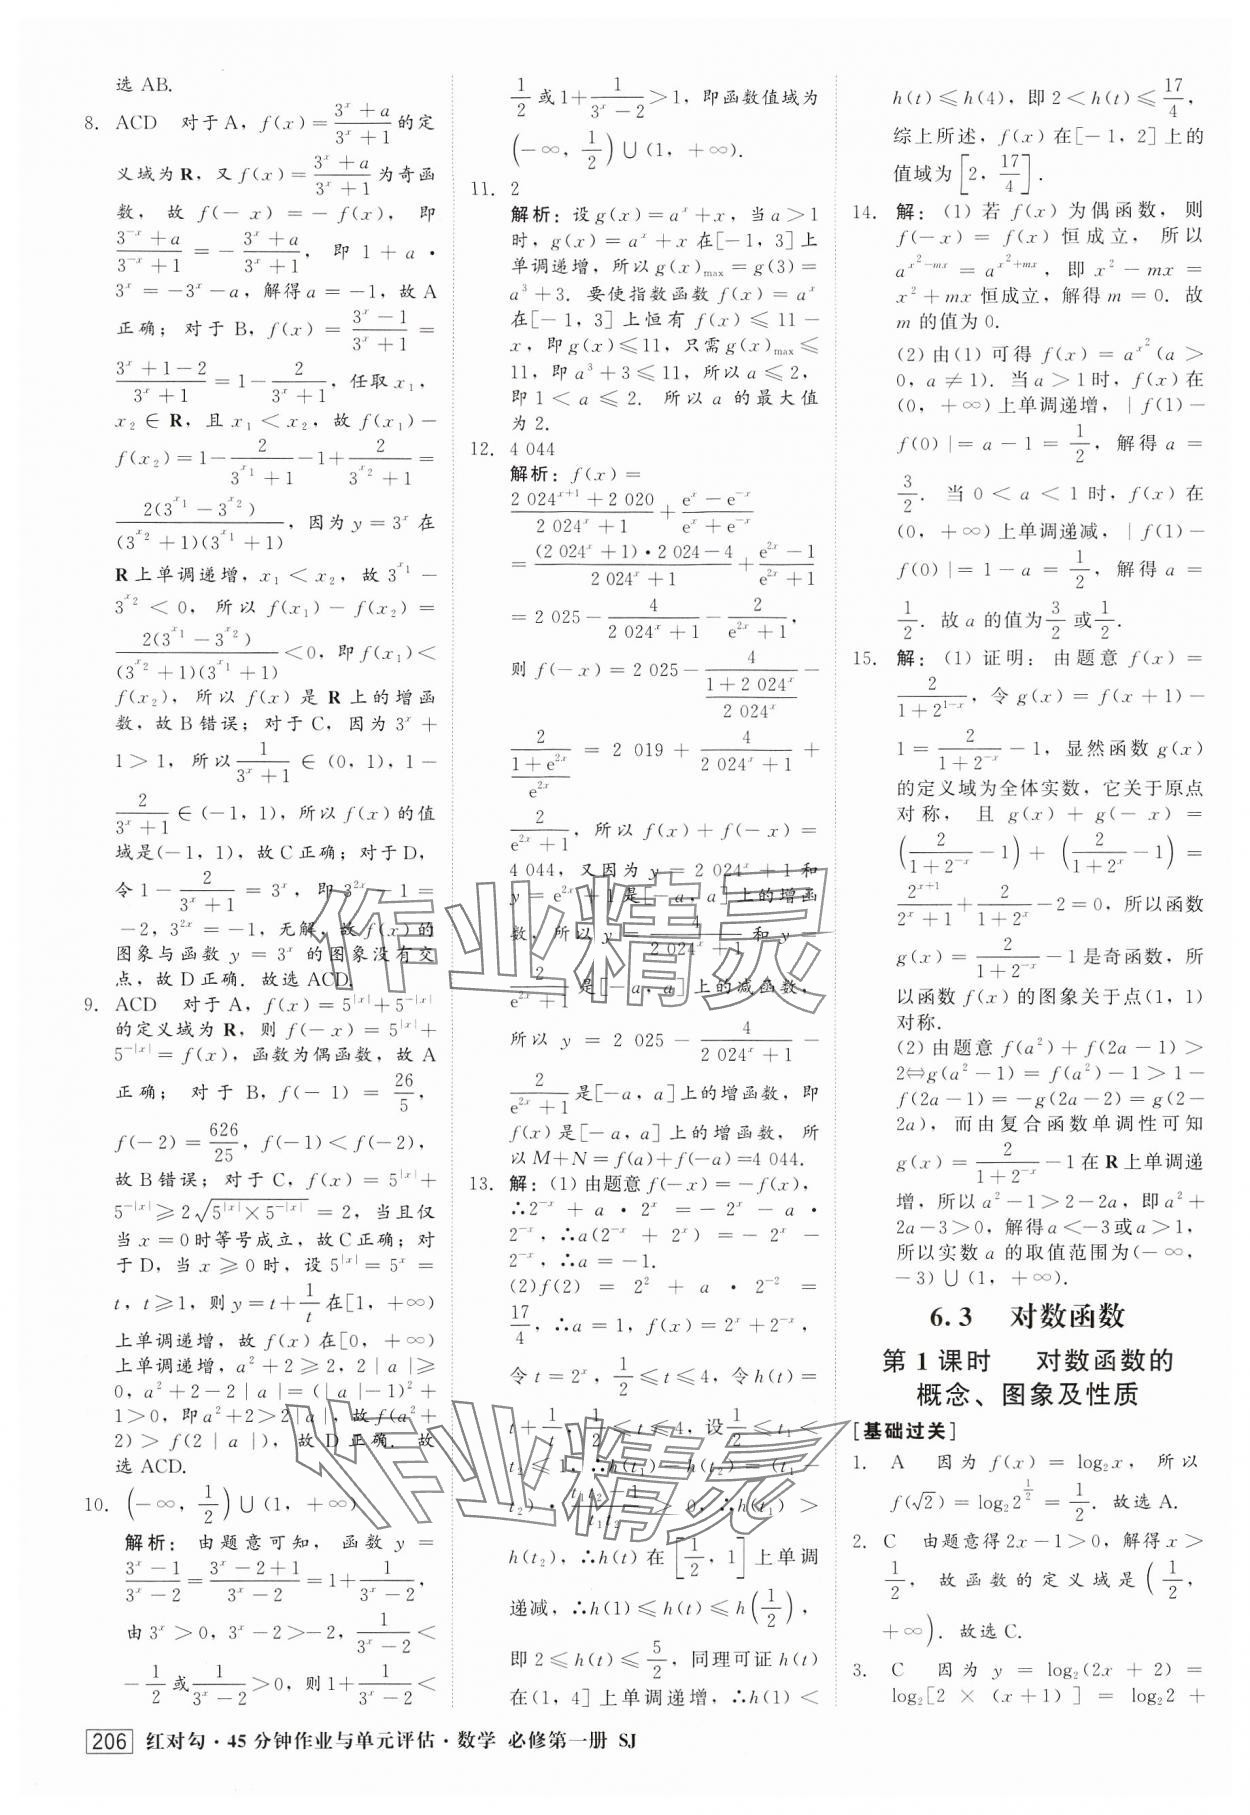 选 AB.
8. ACD 对于 A，f(x)=(3^x+a)/(3^x+1)的定
义域为 R，又 f(x)=(3^x+a)/(3^x+1)为奇函
数，故 f(-x)=-f(x)，即
(3^{-x}+a)/(3^{-x}+1)=-(3^x+a)/(3^x+1)，即 1+a·
3^x=-3^x-a，解得 a=-1，故 A
正确；对于 B，f(x)=(3^x-1)/(3^x+1)=
(3^x+1-2)/(3^x+1)=1-2/(3^x+1)，任取 x₁，
x₂∈R，且 x₁<x₂，故 f(x₁)-
f(x₂)=1-2/(3^{x₁}+1)-1+2/(3^{x₂}+1)=
2(3^{x₁}-3^{x₂})/((3^{x₂}+1)(3^{x₁}+1))，因为 y=3^x 在
R 上单调递增，x₁<x₂，故 3^{x₁}-
3^{x₂}<0，所以 f(x₁)-f(x₂)=
2(3^{x₁}-3^{x₂})/((3^{x₂}+1)(3^{x₁}+1))<0，即 f(x₁)<
f(x₂)，所以 f(x)是 R 上的增函
数，故 B 错误；对于 C，因为 3^x+
1>1，所以 1/(3^x+1)∈(0，1)，1-
2/(3^x+1)∈(-1，1)，所以 f(x)的值
域是(-1，1)，故 C 正确；对于 D，
令 1-2/(3^x+1)=3^x，即 3^{2x}-1=
-2，3^{2x}=-1，无解，故 f(x)的
图象与函数 y=3^x 的图象没有交
点，故 D 正确．故选 ACD.
9. ACD 对于 A，f(x)=5^{|x|}+5^{-|x|}
的定义域为 R，则 f(-x)=5^{|x|}+
5^{-|x|}=f(x)，函数为偶函数，故 A
正确；对于 B，f(-1)=26/5，
f(-2)=626/25，f(-1)<f(-2)，
故 B 错误；对于 C，f(x)=5^{|x|}+
5^{-|x|}≥2√(5^{|x|}×5^{-|x|})=2，当且仅
当 x=0 时等号成立，故 C 正确；对
于 D，当 x≥0 时，设 5^{|x|}=5^x=
t，t≥1，则 y=t+1/t 在[1，+∞)
上单调递增，故 f(x)在[0，+∞)
上单调递增，a²+2≥2，2|a|≥
0，a²+2-2|a|=(|a|-1)²+
1>0，即 a²+2>2|a|，故 f(a²+
2)>f(2|a|)，故 D 正确．故
选 ACD.
10. (-∞，1/2)∪(1，+∞)
解析：由题意可知，函数 y=
(3^x-1)/(3^x-2)=(3^x-2+1)/(3^x-2)=1+1/(3^x-2)，
由 3^x>0，3^x-2>-2，1/(3^x-2)<
-1/2 或 1/(3^x-2)>0，则 1+1/(3^x-2)<
1/2 或 1+1/(3^x-2)>1，即函数值域为
(-∞，1/2)∪(1，+∞).
11. 2
解析：设 g(x)=a^x+x，当 a>1
时，g(x)=a^x+x 在[-1，3]上
单调递增，所以 g(x)_max=g(3)=
a³+3．要使指数函数 f(x)=a^x
在[-1，3]上恒有 f(x)≤11-
x，即 g(x)≤11，只需 g(x)_max≤
11，即 a³+3≤11，所以 a≤2，
即 1<a≤2．所以 a 的最大值
为 2.
12. 4 044
解析：f(x)=
(2 024^{x+1}+2 020)/(2 024^x+1)+(e^x-e^{-x})/(e^x+e^{-x})
=((2 024^x+1)·2 024-4)/(2 024^x+1)+(e^{2x}-1)/(e^{2x}+1)
=2 025-4/(2 024^x+1)-2/(e^{2x}+1)，
则 f(-x)=2 025-4/((1+2 024^x)/(2 024^x))-
2/((1+e^{2x})/(e^{2x}))=2 019+4/(2 024^x+1)+
2/(e^{2x}+1)，所以 f(x)+f(-x)=
4 044，又因为 y=2 024^x+1 和
y=e^{2x}+1 是[-a，a]上的增函
数，所以 y=4/(2 024^x+1) 和 y=
2/(e^{2x}+1)是[-a，a]上的减函数，
所以 y=2 025-4/(2 024^x+1)-
2/(e^{2x}+1)是[-a，a]上的增函数，即
f(x)是[-a，a]上的增函数，所
以 M+N=f(a)+f(-a)=4 044.
13. 解：(1)由题意 f(-x)=-f(x)，
∴2^{-x}+a·2^x=-2^x-a·
2^{-x}，∴a(2^{-x}+2^x)=-2^x-
2^{-x}，∴a=-1.
(2)f(2)=2²+a·2^{-2}=
17/4，∴a=1，f(x)=2^x+2^{-x}，
令 t=2^x，1/2≤t≤4，令 h(t)=
t+1/t，1/2≤t≤4，设 1/2≤t₁<
t₂≤1，∴h(t₁)-h(t₂)=(t₁-
t₂)·(t₁t₂-1)/(t₁t₂)>0，∴h(t₁)>
h(t₂)，∴h(t)在[1/2，1]上单调
递减，∴h(1)≤h(t)≤h(1/2)，
即 2≤h(t)≤5/2，同理可证 h(t)
在(1，4]上单调递增，∴h(1)<
h(t)≤h(4)，即 2<h(t)≤17/4，
综上所述，f(x)在[-1，2]上的
值域为[2，17/4].
14. 解：(1)若 f(x)为偶函数，则
f(-x)=f(x)恒成立，所以
a^{x²-mx}=a^{x²+mx}，即 x²-mx=
x²+mx 恒成立，解得 m=0．故
m 的值为 0.
(2)由(1)可得 f(x)=a^{x²}(a>
0，a≠1)．当 a>1 时，f(x)在
(0，+∞)上单调递增，|f(1)-
f(0)|=a-1=1/2，解得 a=
3/2．当 0<a<1 时，f(x)在
(0，+∞)上单调递减，|f(1)-
f(0)|=1-a=1/2，解得 a=
1/2．故 a 的值为 3/2 或 1/2.
15. 解：(1)证明：由题意 f(x)=
2/(1+2^{1-x})，令 g(x)=f(x+1)-
1=2/(1+2^{-x})-1，显然函数 g(x)
的定义域为全体实数，它关于原点
对称，且 g(x)+g(-x)=
(2/(1+2^{-x})-1)+(2/(1+2^x)-1)=
2^{x+1}/(2^x+1)+2/(1+2^x)-2=0，所以函数
g(x)=2/(1+2^{-x})-1 是奇函数，所
以函数 f(x)的图象关于点(1，1)
对称.
(2)由题意 f(a²)+f(2a-1)>
2⇔g(a²-1)=f(a²)-1>1-
f(2a-1)=-g(2a-2)=g(2-
2a)，而由复合函数单调性可知
g(x)=2/(1+2^{-x})-1 在 R 上单调递
增，所以 a²-1>2-2a，即 a²+
2a-3>0，解得 a<-3 或 a>1，
所以实数 a 的取值范围为(-∞，
-3)∪(1，+∞).
6.3 对数函数
第 1 课时 对数函数的
概念、图象及性质
[基础过关]
1. A 因为 f(x)=log₂x，所以
f(√2)=log₂2^{1/2}=1/2．故选 A.
2. C 由题意得 2x-1>0，解得 x>
1/2，故函数的定义域是(1/2，
+∞)．故选 C.
3. C 因为 y=log₂(2x+2)=
log₂[2×(x+1)]=log₂2+
206 红对勾·45 分钟作业与单元评估·数学 必修第一册 SJ
作业精灵
作业精灵